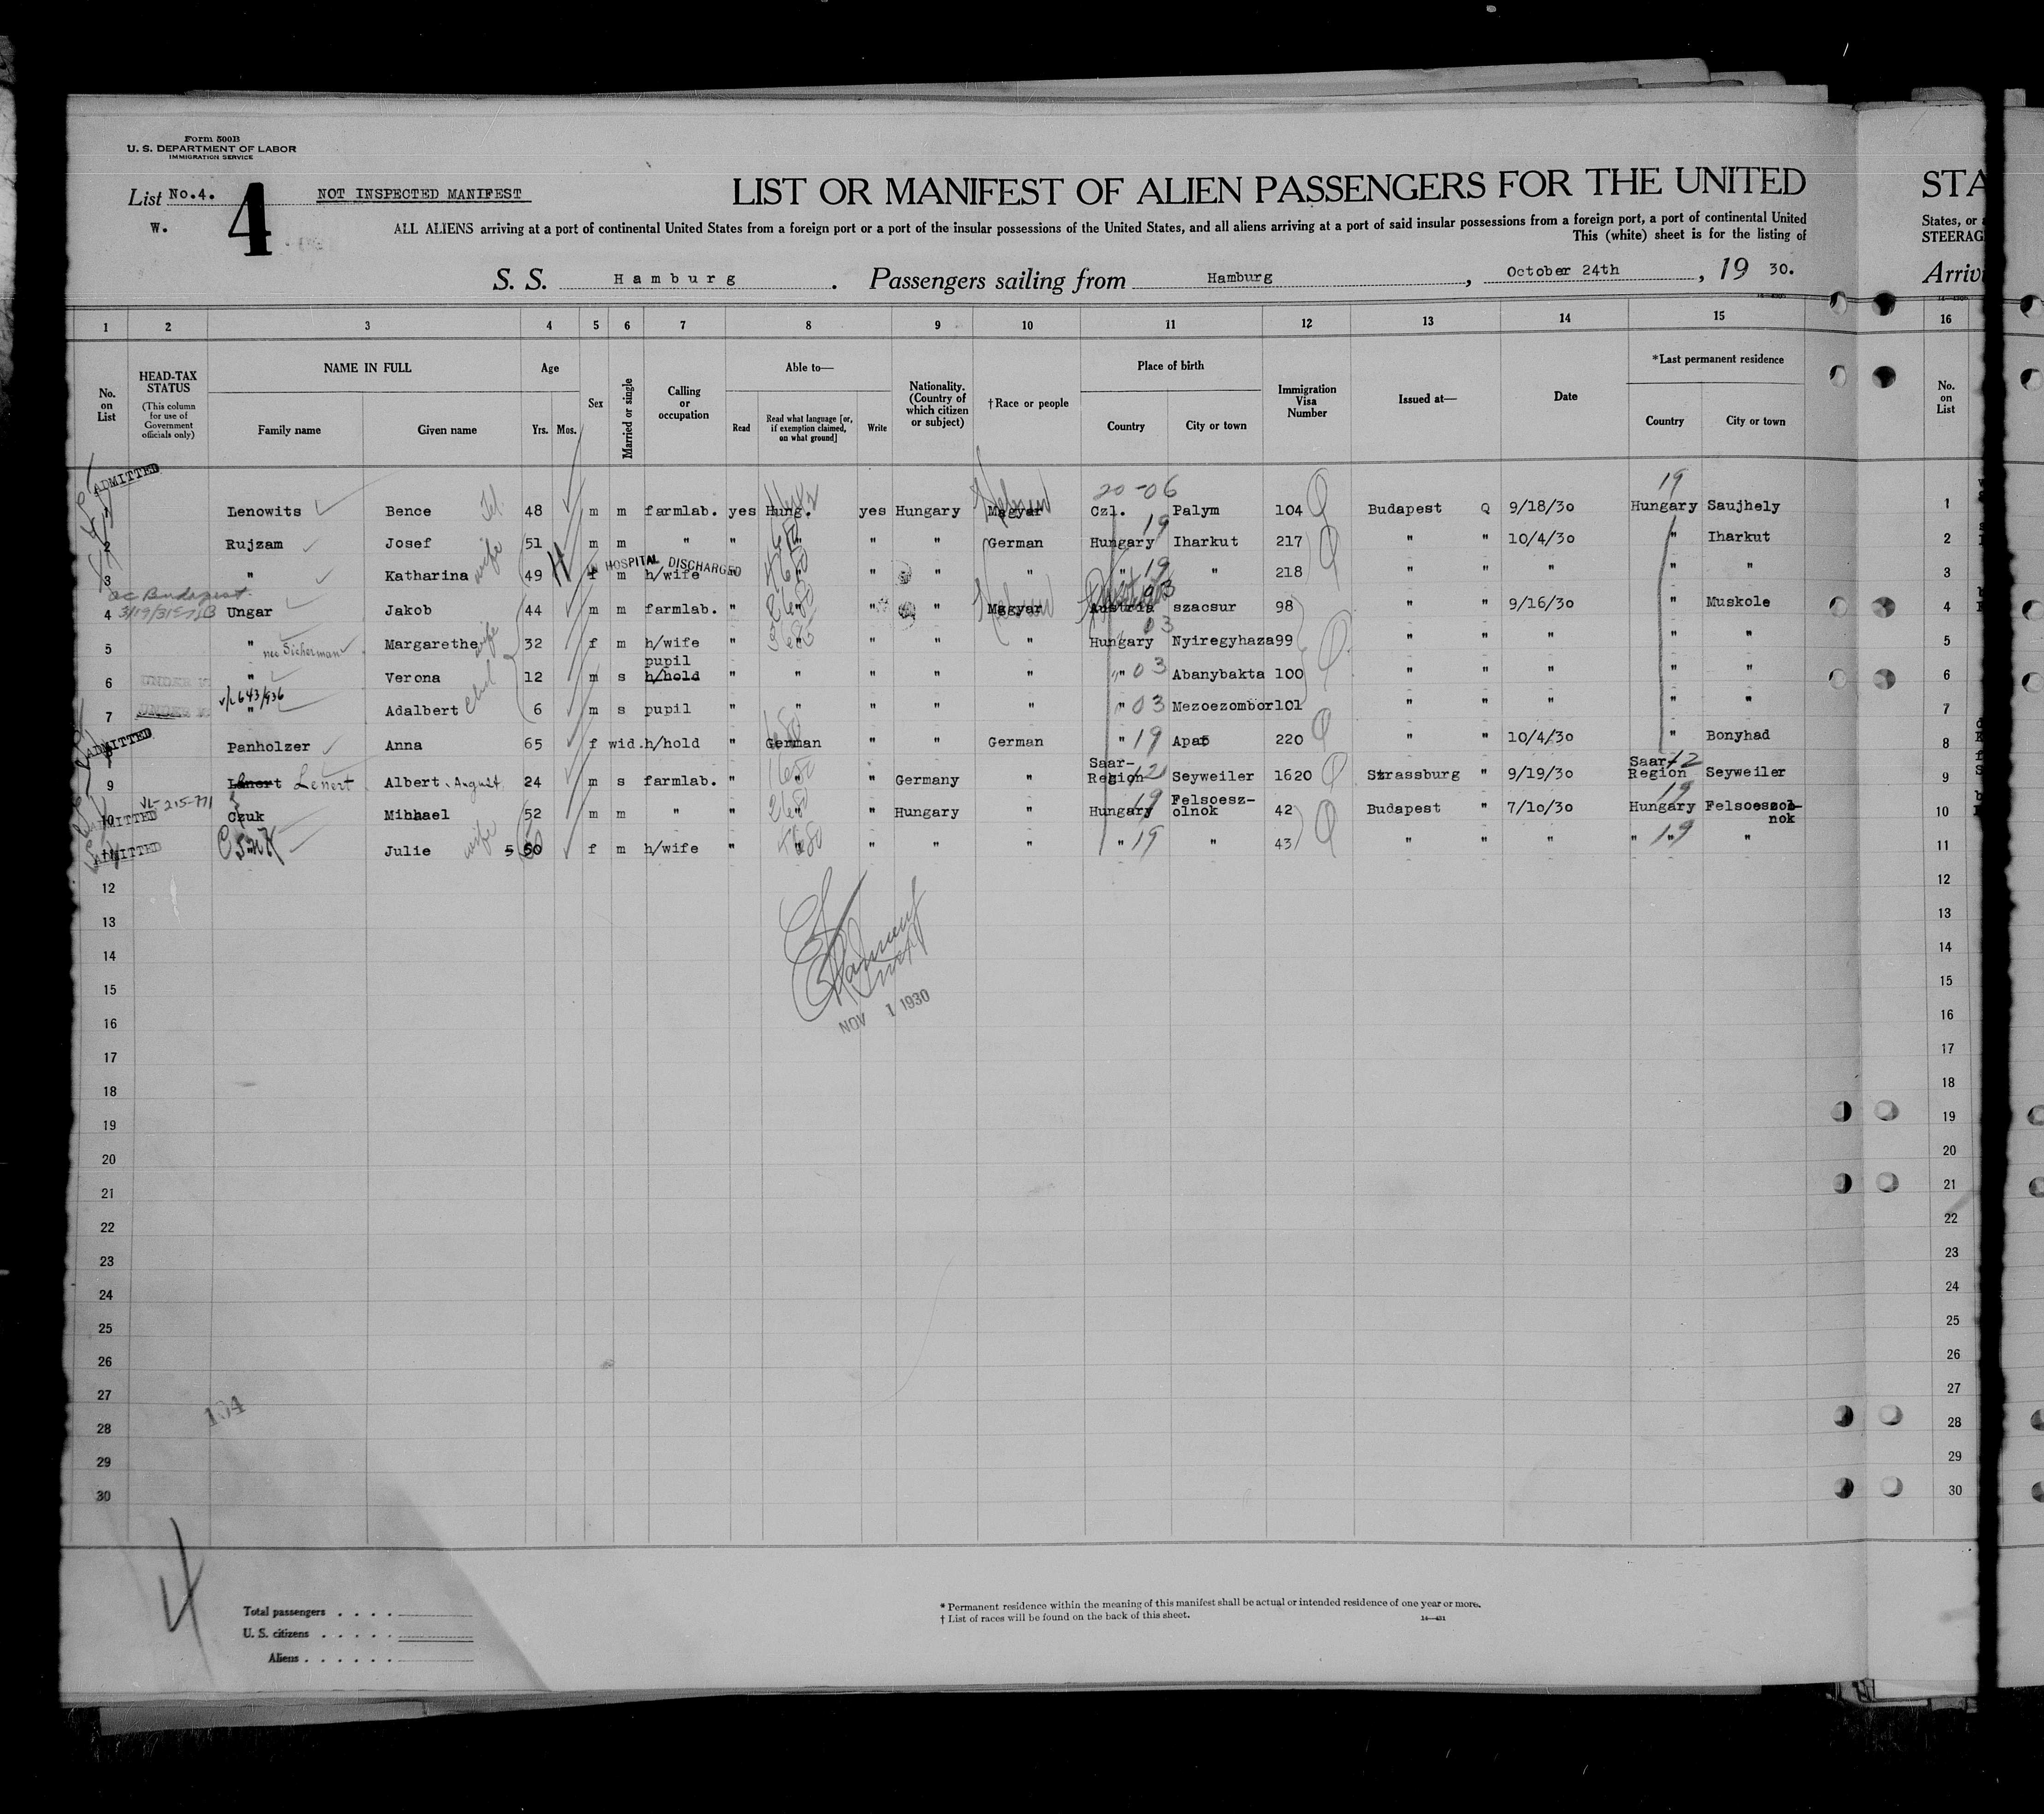 Form 500B
U. S. DEPARTMENT OF LABOR
IMMIGRATION SERVICE
List No.4. 4 NOT INSPECTED MANIFEST
W.
LIST OR MANIFEST OF ALIEN PASSENGERS FOR THE UNITED STA
ALL ALIENS arriving at a port of continental United States from a foreign port or a port of the insular possessions of the United States, and all aliens arriving at a port of said insular possessions from a foreign port, a port of continental United States, or
This (white) sheet is for the listing of STEERAG
S. S. Hamburg. Passengers sailing from Hamburg, October 24th, 19 30. Arriv
1 2 3 4 5 6 7 8 9 10 11 12 13 14 15 16
No. on List
HEAD-TAX STATUS (This column for use of Government officials only)
NAME IN FULL
Family name Given name
Age
Yrs. Mos.
Sex
Married or single
Calling or occupation
Able to—
Read
Read what language [or, if exemption claimed, on what ground]
Write
Nationality. (Country of which citizen or subject)
†Race or people
Place of birth
Country City or town
Immigration Visa Number
Issued at—
Date
*Last permanent residence
Country City or town
No. on List
ADMITTED
20-06 19
1 Lenowits Bence 48 m m farmlab. yes Hung. yes Hungary Magyar Hebrew Czl. Palym 104 Budapest Q 9/18/30 Hungary Saujhely 1
2 Rujzam Josef 51 m m " " " " " German Hungary 19 Iharkut 217 " " 10/4/30 " Iharkut 2
HOSPITAL DISCHARGED
3 " Katharina wife 49 f m h/wife " " " " " " 19 " 218 " " " " " 3
4 Ungar Jakob 44 m m farmlab. " " " " Magyar Hebrew Austria szacsur 98 " " 9/16/30 " Muskole 4
5 " nee Sicherman Margarethe wife 32 f m h/wife " " " " " Hungary 03 Nyiregyhaza 99 " " " " " 5
pupil
6 " Verona 12 m s h/hold " " " " " " 03 Abanybakta 100 " " " " " 6
7 " Adalbert 6 m s pupil " " " " " " 03 Mezoezombor 101 " " " " " 7
ADMITTED
8 Panholzer Anna 65 f wid. h/hold " German " " German " 19 Apar 220 " " 10/4/30 " Bonyhad 8
9 Lanert Lenert Albert, August 24 m s farmlab. " " " Germany " Saar-Region 12 Seyweiler 1620 Strassburg " 9/19/30 Saar-Region 12 Seyweiler 9
VL-215-771
ADMITTED
10 Czuk Mihhael 52 m m " " " " Hungary " Hungary 19 Felsoesz-olnok 42 Budapest " 7/10/30 Hungary 19 Felsoeszol-nok 10
ADMITTED
11 Julie wife 50 f m h/wife " " " " " " 19 " 43 " " " " 19 " 11
12 12
13 13
14 14
15 15
NOV 1 1930
16 16
17 17
18 18
19 19
20 20
21 21
22 22
23 23
24 24
25 25
26 26
27 27
104
28 28
29 29
30 30
4
Total passengers
U. S. citizens
Aliens
* Permanent residence within the meaning of this manifest shall be actual or intended residence of one year or more.
† List of races will be found on the back of this sheet.